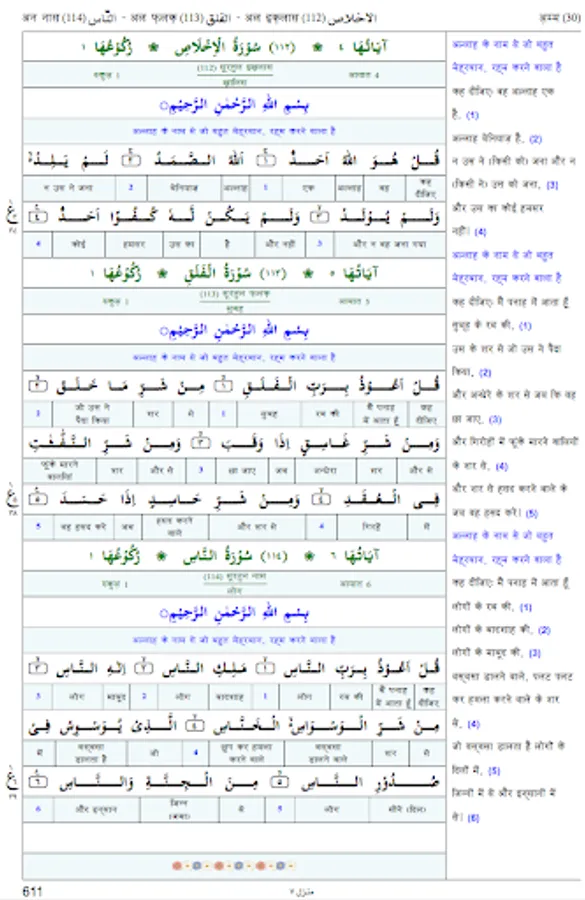 अन नास (114) النَّاس - अल फ़लक़ (113) الفَلَق - अल इख़्लास (112) الاخلاص
अ़म्म (30)
اٰيَاتُهَا ٤ ❀ (١١٢) سُوْرَةُ الْاِخْلَاصِ ❀ رُكُوْعُهَا ١
रुकुअ़ 1
(112) सूरतुल इख़्लास
ख़ालिस
आयात 4
بِسْمِ اللهِ الرَّحْمٰنِ الرَّحِيْمِ
अल्लाह के नाम से जो बहुत मेह्‌रबान, रह्‌म करने वाला है
قُلْ هُوَ اللهُ اَحَدٌ ١ اَللهُ الصَّمَدُ ٢ لَمْ يَلِدْ
कह दीजिए
वह
अल्लाह
एक
1
अल्लाह
बेनियाज़
2
न उस ने जना
وَلَمْ يُوْلَدْ ٣ وَلَمْ يَكُنْ لَّهٗ كُفُوًا اَحَدٌ ٤
और न वह जना गया
3
और नहीं
है
उस का
हमसर
कोई
4
اٰيَاتُهَا ٥ ❀ (١١٣) سُوْرَةُ الْفَلَقِ ❀ رُكُوْعُهَا ١
रुकुअ़ 1
(113) सूरतुल फ़लक़
सुबह
आयात 5
بِسْمِ اللهِ الرَّحْمٰنِ الرَّحِيْمِ
अल्लाह के नाम से जो बहुत मेह्‌रबान, रह्‌म करने वाला है
قُلْ اَعُوْذُ بِرَبِّ الْفَلَقِ ١ مِنْ شَرِّ مَا خَلَقَ ٢
कह दीजिए
मैं पनाह में आता हूँ
रब की
सुबह
1
से
शर
जो उस ने पैदा किया
2
وَمِنْ شَرِّ غَاسِقٍ اِذَا وَقَبَ ٣ وَمِنْ شَرِّ النَّفّٰثٰتِ
और से
शर
अन्धेरा
जब
छा जाए
3
और से
शर
फूंके मारने वालियां
فِى الْعُقَدِ ٤ وَمِنْ شَرِّ حَاسِدٍ اِذَا حَسَدَ ٥
में
गिरहें
4
और शर से
हसद करने वाले
जब
वह हसद करे
5
اٰيَاتُهَا ٦ ❀ (١١٤) سُوْرَةُ النَّاسِ ❀ رُكُوْعُهَا ١
रुकुअ़ 1
(114) सूरतुन नास
लोग
आयात 6
بِسْمِ اللهِ الرَّحْمٰنِ الرَّحِيْمِ
अल्लाह के नाम से जो बहुत मेह्‌रबान, रह्‌म करने वाला है
قُلْ اَعُوْذُ بِرَبِّ النَّاسِ ١ مَلِكِ النَّاسِ ٢ اِلٰهِ النَّاسِ ٣
कह दीजिए
मैं पनाह में आता हूँ
रब की
लोग
1
बादशाह
लोग
2
माबूद
लोग
3
مِنْ شَرِّ الْوَسْوَاسِ الْخَنَّاسِ ٤ الَّذِىْ يُوَسْوِسُ فِىْ
से
शर
वस्वसा डालने वाले
छुप कर हमला करने वाले
4
जो
वस्वसा डालता है
में
صُدُوْرِ النَّاسِ ٥ مِنَ الْجِنَّةِ وَالنَّاسِ ٦
सीने (दिल)
लोग
5
से
जिन्न (जमा)
और इन्सान
6
अल्लाह के नाम से जो बहुत
मेह्‌रबान, रह्‌म करने वाला है
कह दीजिए: वह अल्लाह एक
है, (1)
अल्लाह बेनियाज़ है, (2)
न उस ने (किसी को) जना और न
(किसी ने) उस को जना, (3)
और उस का कोई हमसर
नहीं। (4)
अल्लाह के नाम से जो बहुत
मेह्‌रबान, रह्‌म करने वाला है
कह दीजिए: मैं पनाह में आता हूँ
सुबह के रब की, (1)
उस के शर से जो उस ने पैदा
किया, (2)
और अन्धेरे के शर से जब कि वह
छा जाए, (3)
और गिरोहों में फूंके मारने वालियों
के शर से, (4)
और शर से हसद करने वाले के
जब वह हसद करे। (5)
अल्लाह के नाम से जो बहुत
मेह्‌रबान, रह्‌म करने वाला है
कह दीजिए: मैं पनाह में आता हूँ
लोगों के रब की, (1)
लोगों के बादशाह की, (2)
लोगों के माबूद की, (3)
वस्वसा डालने वाले, पलट पलट
कर हमला करने वाले के शर
से, (4)
जो वस्वसा डालता है लोगों के
दिलों में, (5)
जिन्नों में से और इन्सानों में
से। (6)
611
منزل ٧